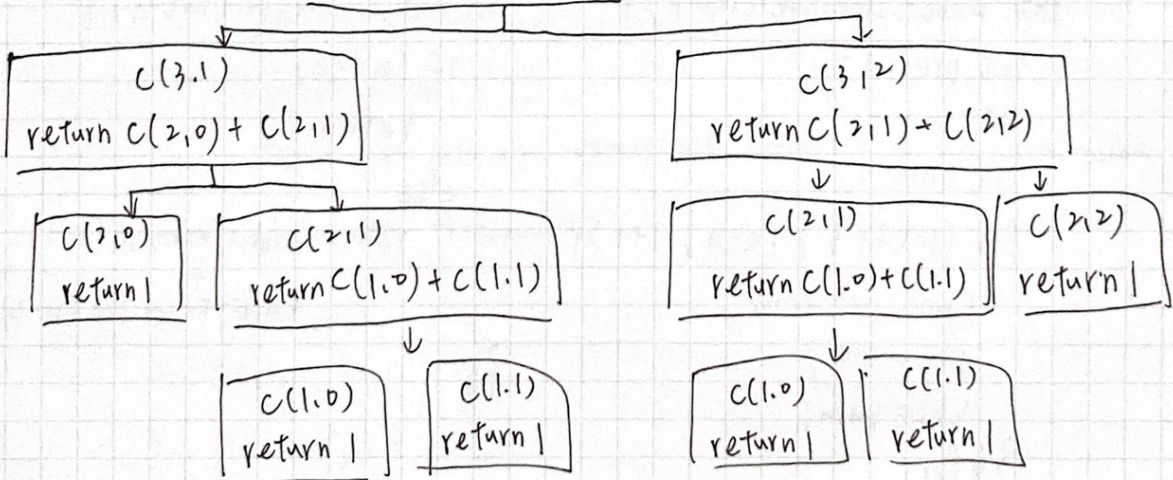 C(3.1)
return C(2,0) + C(2,1)
C(3,2)
return C(2,1) + C(2,2)
C(2,0)
return 1
C(2,1)
return C(1.0) + C(1.1)
C(2,1)
return C(1.0) + C(1.1)
C(2,2)
return 1
C(1.0)
return 1
C(1.1)
return 1
C(1.0)
return 1
C(1.1)
return 1